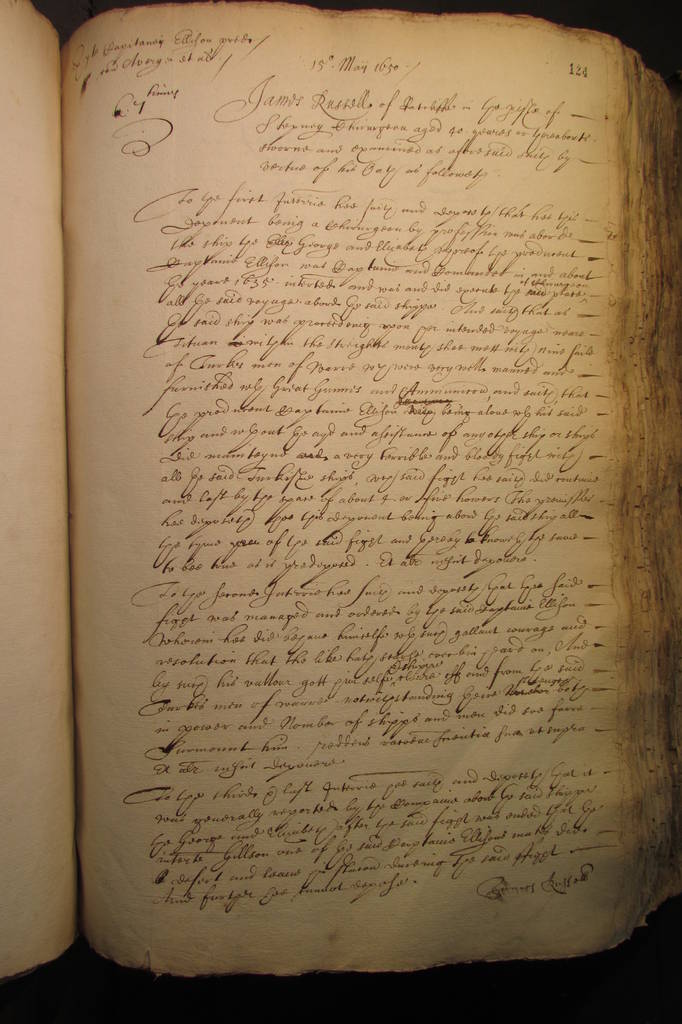 Capitaneus Ellison
15º May 1650
124
James Russell of Ratcliffe in the parish of
Stepney Chirurgeon aged 40 yeares or thereabouts
sworne and examined as aforesaid saith by
vertue of his Oath as followeth
To the first Interrie hee saith and deposeth that hee this
deponent being a Chirurgeon by profession was aborde
the ship the George and Elizabeth whereof the producent
Captaine Ellison was Captaine and Comander in and about
the yeare 1635 and was and did execute the said place of Chirurgeon
all the said voyage aboard the said shippe. And saith that as
the said ship was proceeding upon her intended voyage neare
Tituan within the Straights mouth shee mett with nine saile
of Turkes men of Warre wch were very well manned and
furnished wth Great Gunnes and Ammunicion, and saith that
the producent Captaine Ellison being alone wth his said
ship and wthout the ayd and assistance of any other ship or ships
did mainteyne a very terrible and bloody fight with
all the said Turkishe ships, wch said fight hee saith did continue
and last by the space of about 4 or five howers The premisses
hee deposeth hee this deponent being aboard the said ship all
the tyme of the said fight and thereby knoweth the same
to bee true as is predeposed. Et aliter nescit deponere.
To the second Interrie hee saith and deposeth that the said
fight was managed and ordered by the said Captaine Ellison
Wherein hee did behave himselfe wth such gallant courage and
resolution that the like hath seldome bin heard on, And
by such his vallour gott himselfe & shippe cleere off and from the said
Turkes men of warre notwithstanding theire strength both
in power and Nomber of shipps and men did soe farre
Surmount him. reddens racionem scientiae suae ut supra
Et aliter nescit deponere
To the third & last Interrie hee saith and deposeth that it
was generally reported by the Companie aboard the said shippe
the George and Elizabeth after the said fight was ended that the
Gillson one of the said Captaine Ellisons mates did
desert and leave his station dureing the said fight
And further hee cannot depose.
James Russell